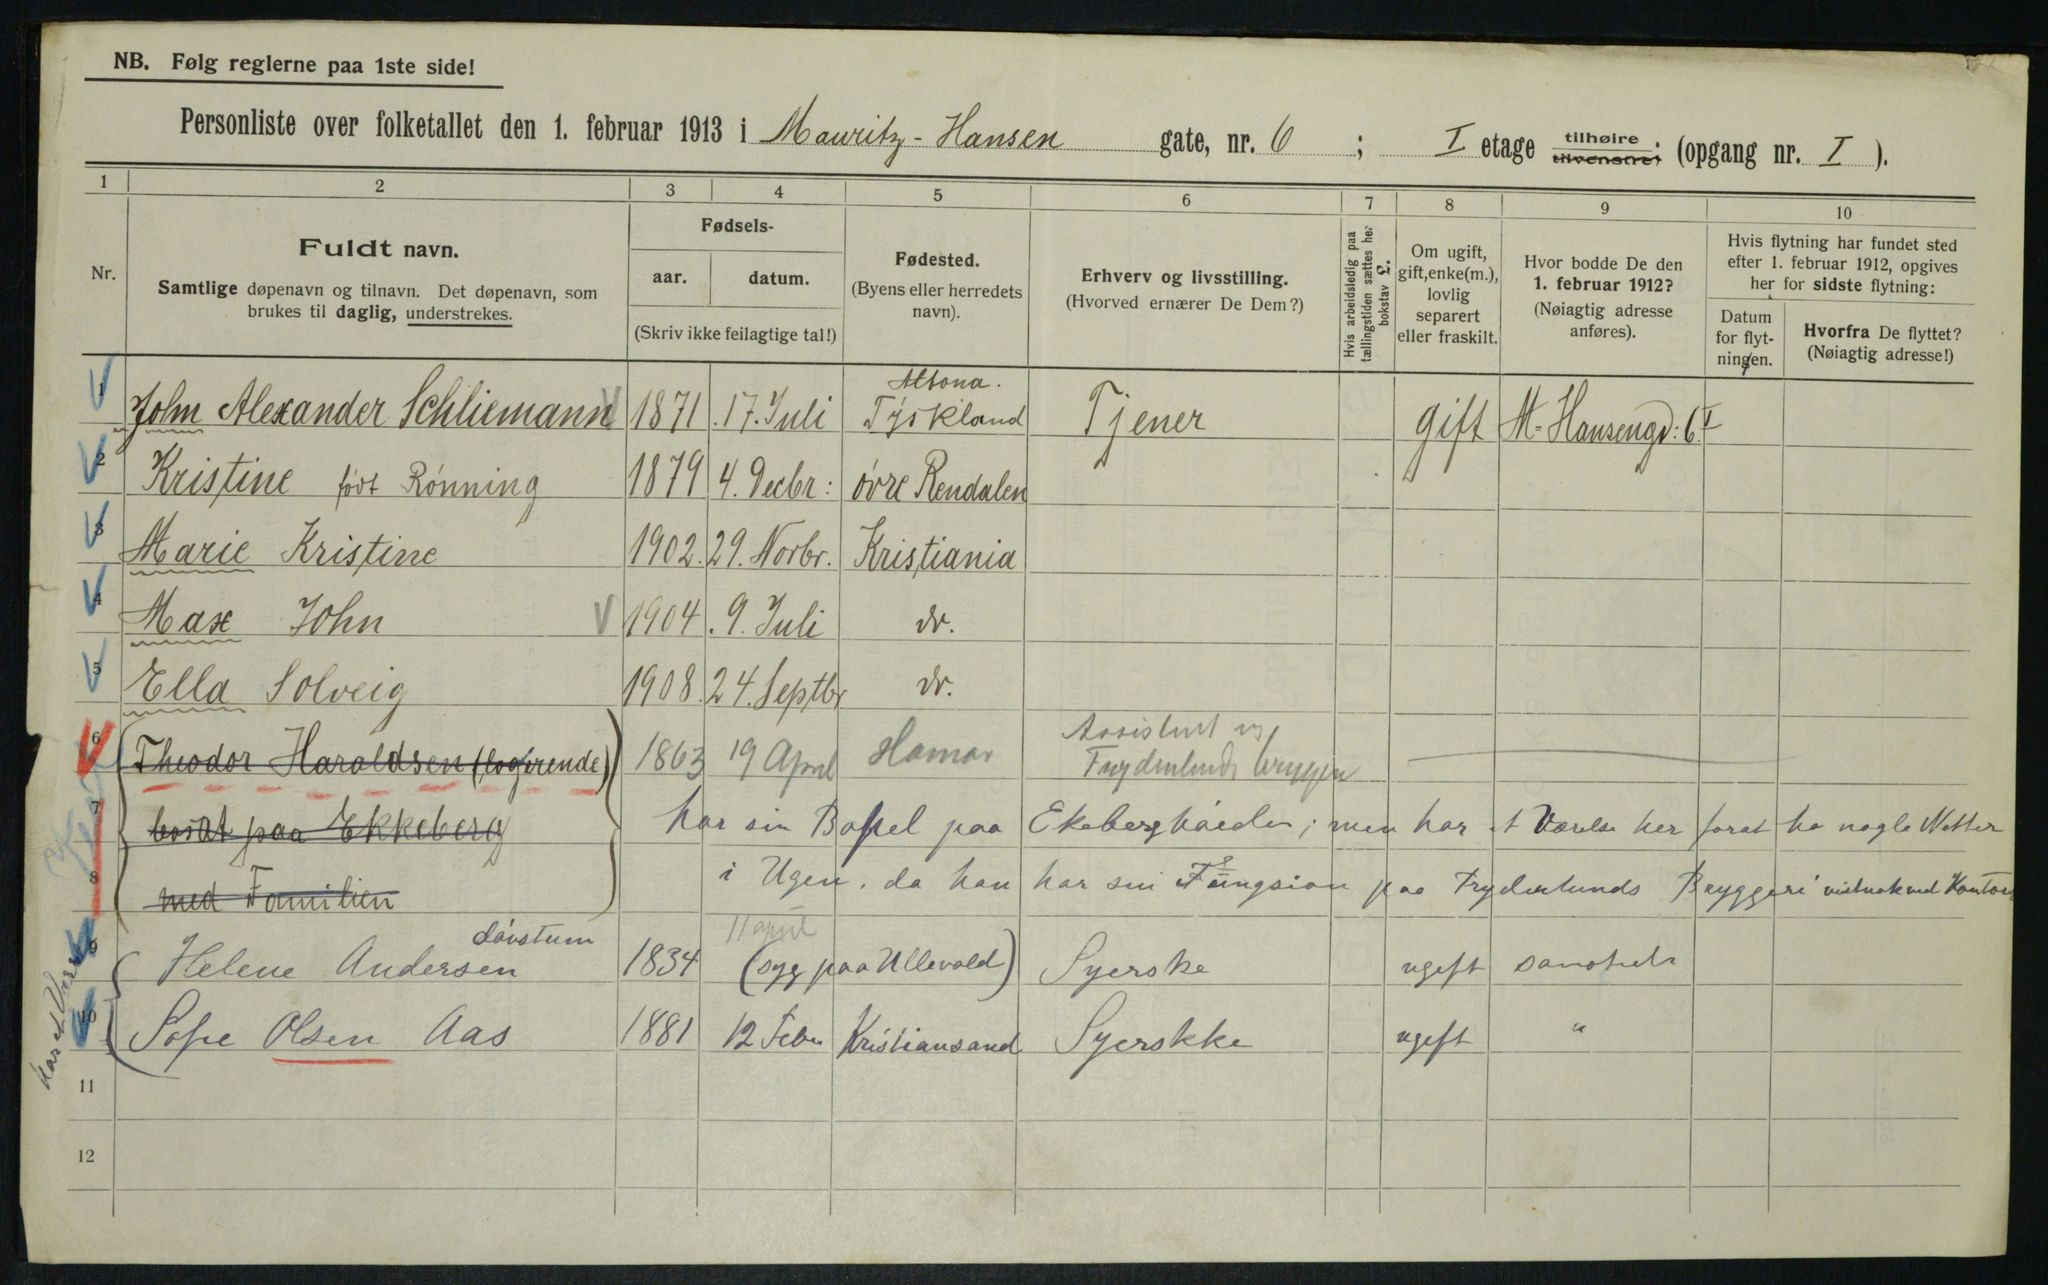 NB. Følg reglerne paa 1ste side!
Personliste over folketallet den 1. februar 1913 i Mauritz-Hansen gate, nr. 6 ; I etage tilhøire tilvenstre; (opgang nr. I ).
1 2 3 4 5 6 7 8 9 10
Nr.
Fuldt navn.
Samtlige døpenavn og tilnavn. Det døpenavn, som
brukes til daglig, understrekes.
Fødsels-
aar. datum.
(Skriv ikke feilagtige tal!)
Fødested.
(Byens eller herredets
navn).
Erhverv og livsstilling.
(Hvorved ernærer De Dem?)
Hvis arbeidsledig paa
tællingstiden sættes her
bokstav £.
Om ugift,
gift, enke(m.),
lovlig
separert
eller fraskilt.
Hvor bodde De den
1. februar 1912?
(Nøiagtig adresse
anføres).
Hvis flytning har fundet sted
efter 1. februar 1912, opgives
her for sidste flytning:
Datum
for flyt-
ningen.
Hvorfra De flyttet?
(Nøiagtig adresse!)
Altona.
1 John Alexander Schliemann 1871 17. Juli Tyskland Tjener gift M-Hansengd: 6 I
2 Kristine født Rønning 1879 4. Decbr: øvre Rendalen
3 Marie Kristine 1902. 29. Novbr. Kristiania
4 Max John 1904. 9. Juli do.
5 Ella Solveig 1908. 24. Septbr do.
6 Theodor Haraldsen (logerende) 1863 19 April Hamar Assistent
Frydenlunds bryggeri
7 bosat paa Ekkeberg har sin Bopel paa Ekeberghøiden; men har et Værelse her forat ha nogle Netter
8 med Familien i Ugen, da han har sin Fungsion paa Frydenlunds Bryggeri vistnok ved Kontoret
døvstum 11 april
9 Helene Andersen 1834 (syg paa Ullevold) Syerske ugift
10 Sofie Olsen Aas 1881 12 Febr Kristiansand Syerskke ugift "
har et Værelse
11
12